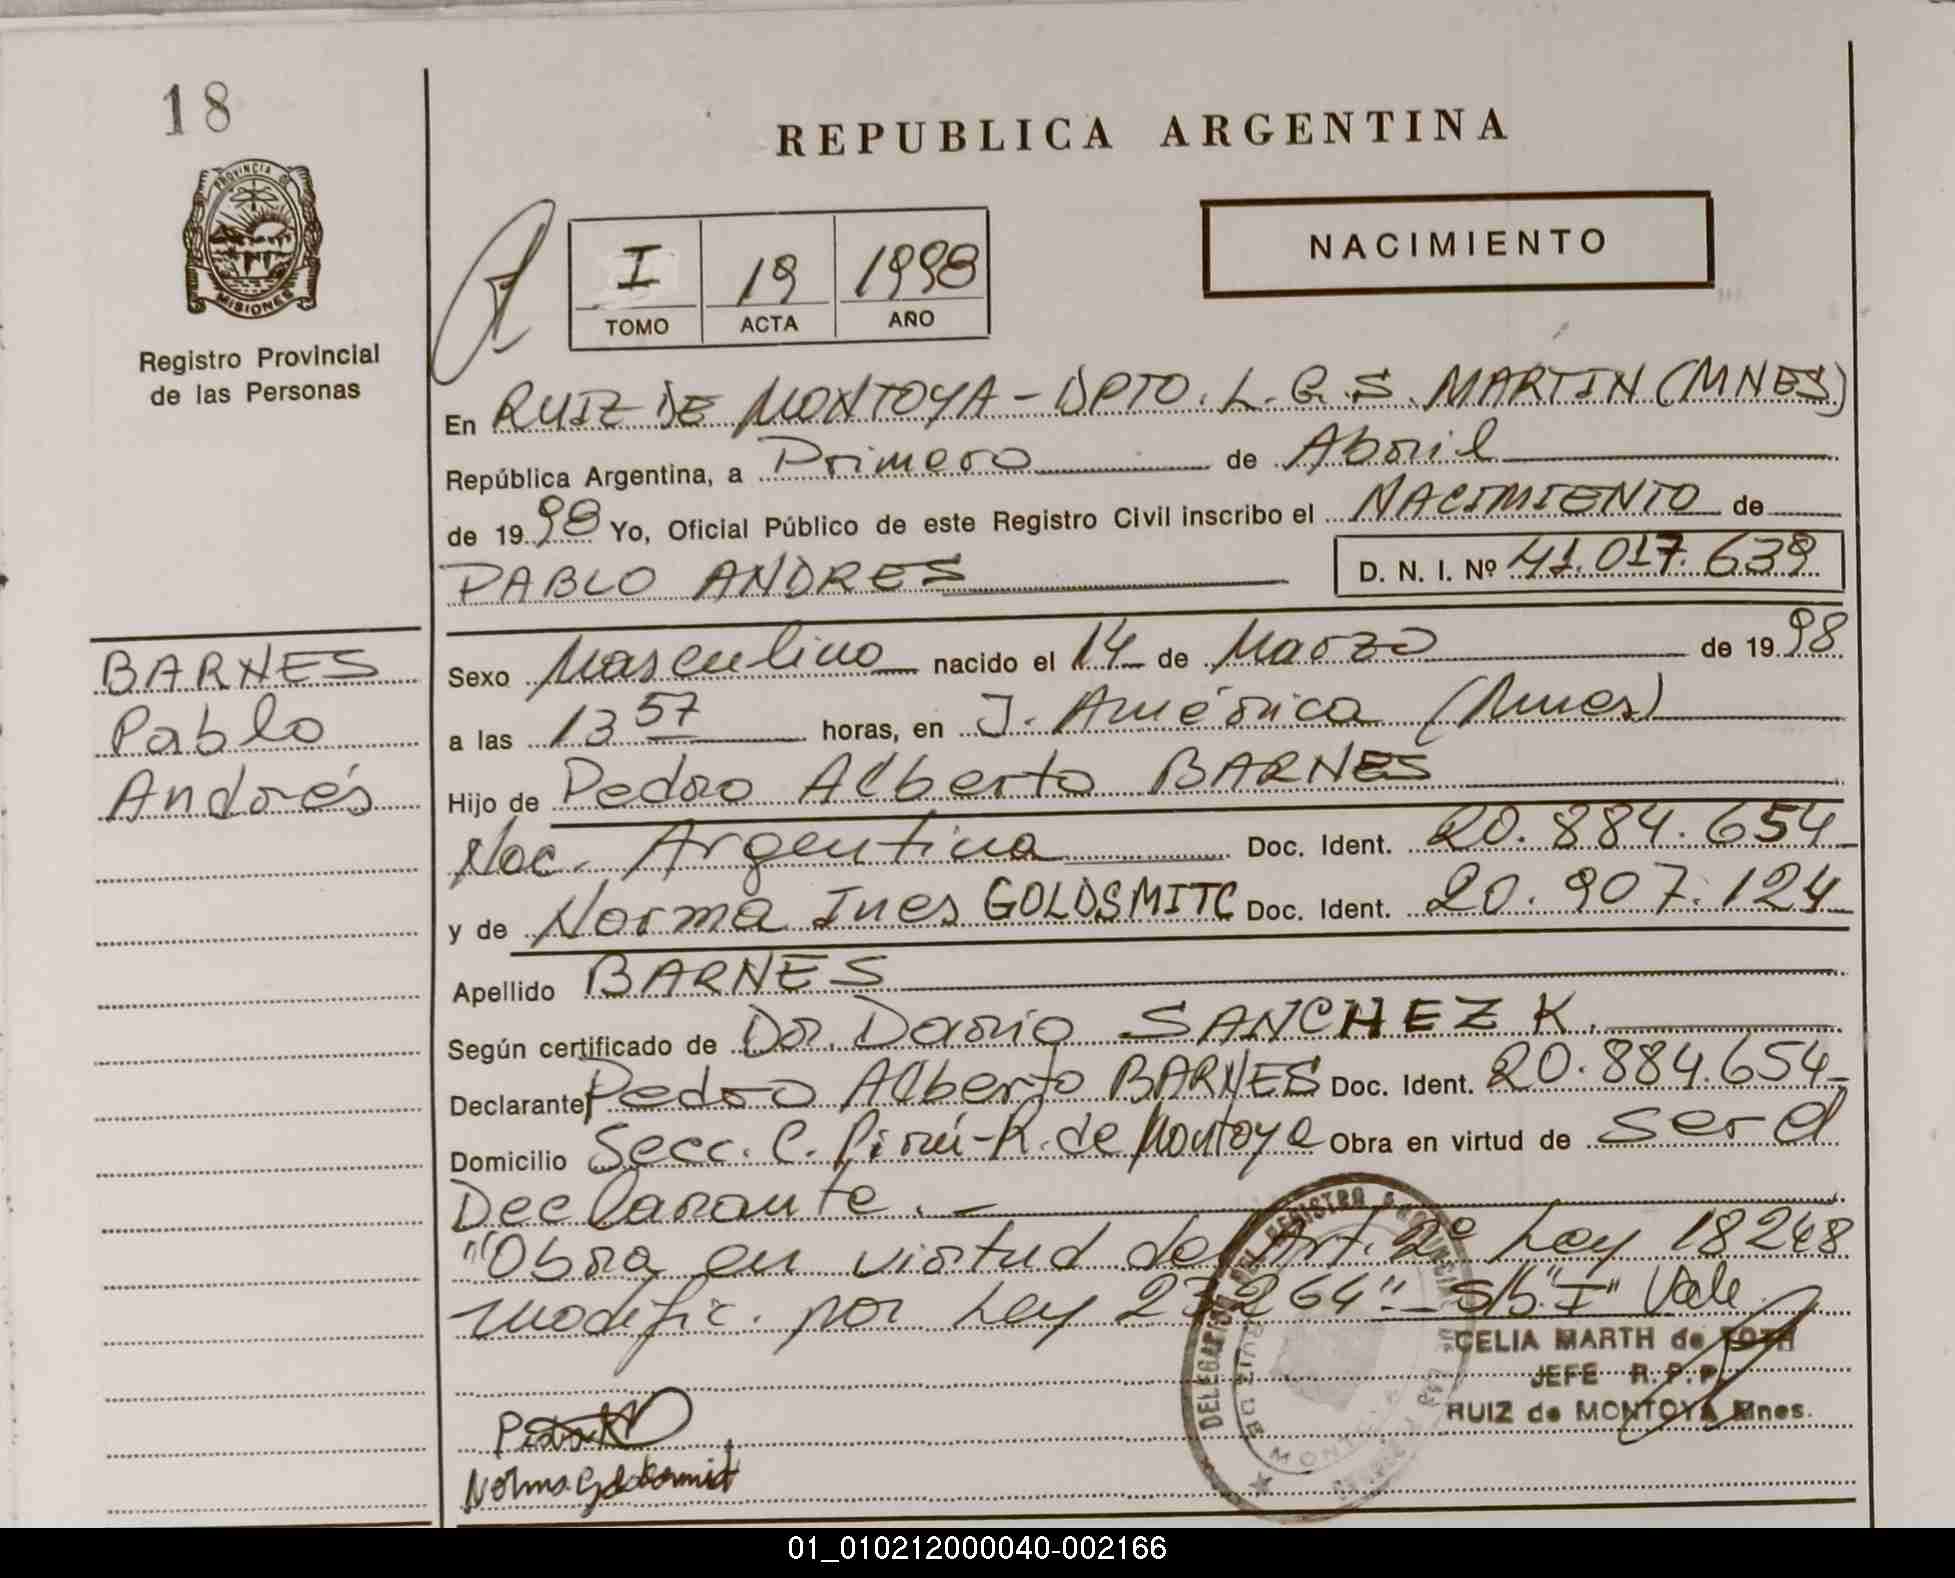 18
PROVINCIA DE
MISIONES
Registro Provincial
de las Personas
BARNES
Pablo
Andrés
REPUBLICA ARGENTINA
I 19 1998
TOMO ACTA AÑO
NACIMIENTO
En RUIZ DE MONTOYA - DPTO. L. G. S. MARTIN (MNES)
República Argentina, a Primero de Abril
de 1998 Yo, Oficial Público de este Registro Civil inscribo el NACIMIENTO de
PABLO ANDRES D. N. I. Nº 41.017.639
Sexo Masculino nacido el 14 de Marzo de 1998
a las 13 57 horas, en J. América (Mnes)
Hijo de Pedro Alberto BARNES
Nac. Argentina Doc. Ident. 20.884.654
y de Norma Ines GOLDSMITC Doc. Ident. 20.907.124
Apellido BARNES
Según certificado de Dr. Dario SANCHEZ K.
Declarante Pedro Alberto BARNES Doc. Ident. 20.884.654
Domicilio Secc. C. Pirú-R. de Montoya Obra en virtud de ser el
Declarante. -
"Obra en virtud del Art. 2º Ley 18248
modific. por Ley 23264" - S/b "I" Vale
CELIA MARTH de FOTH
JEFE R.P.P.
RUIZ de MONTOYA Mnes.
DELEGACION DEL REGISTRO PROVINCIAL DE LAS
RUIZ DE MONTOYA
01_010212000040-002166